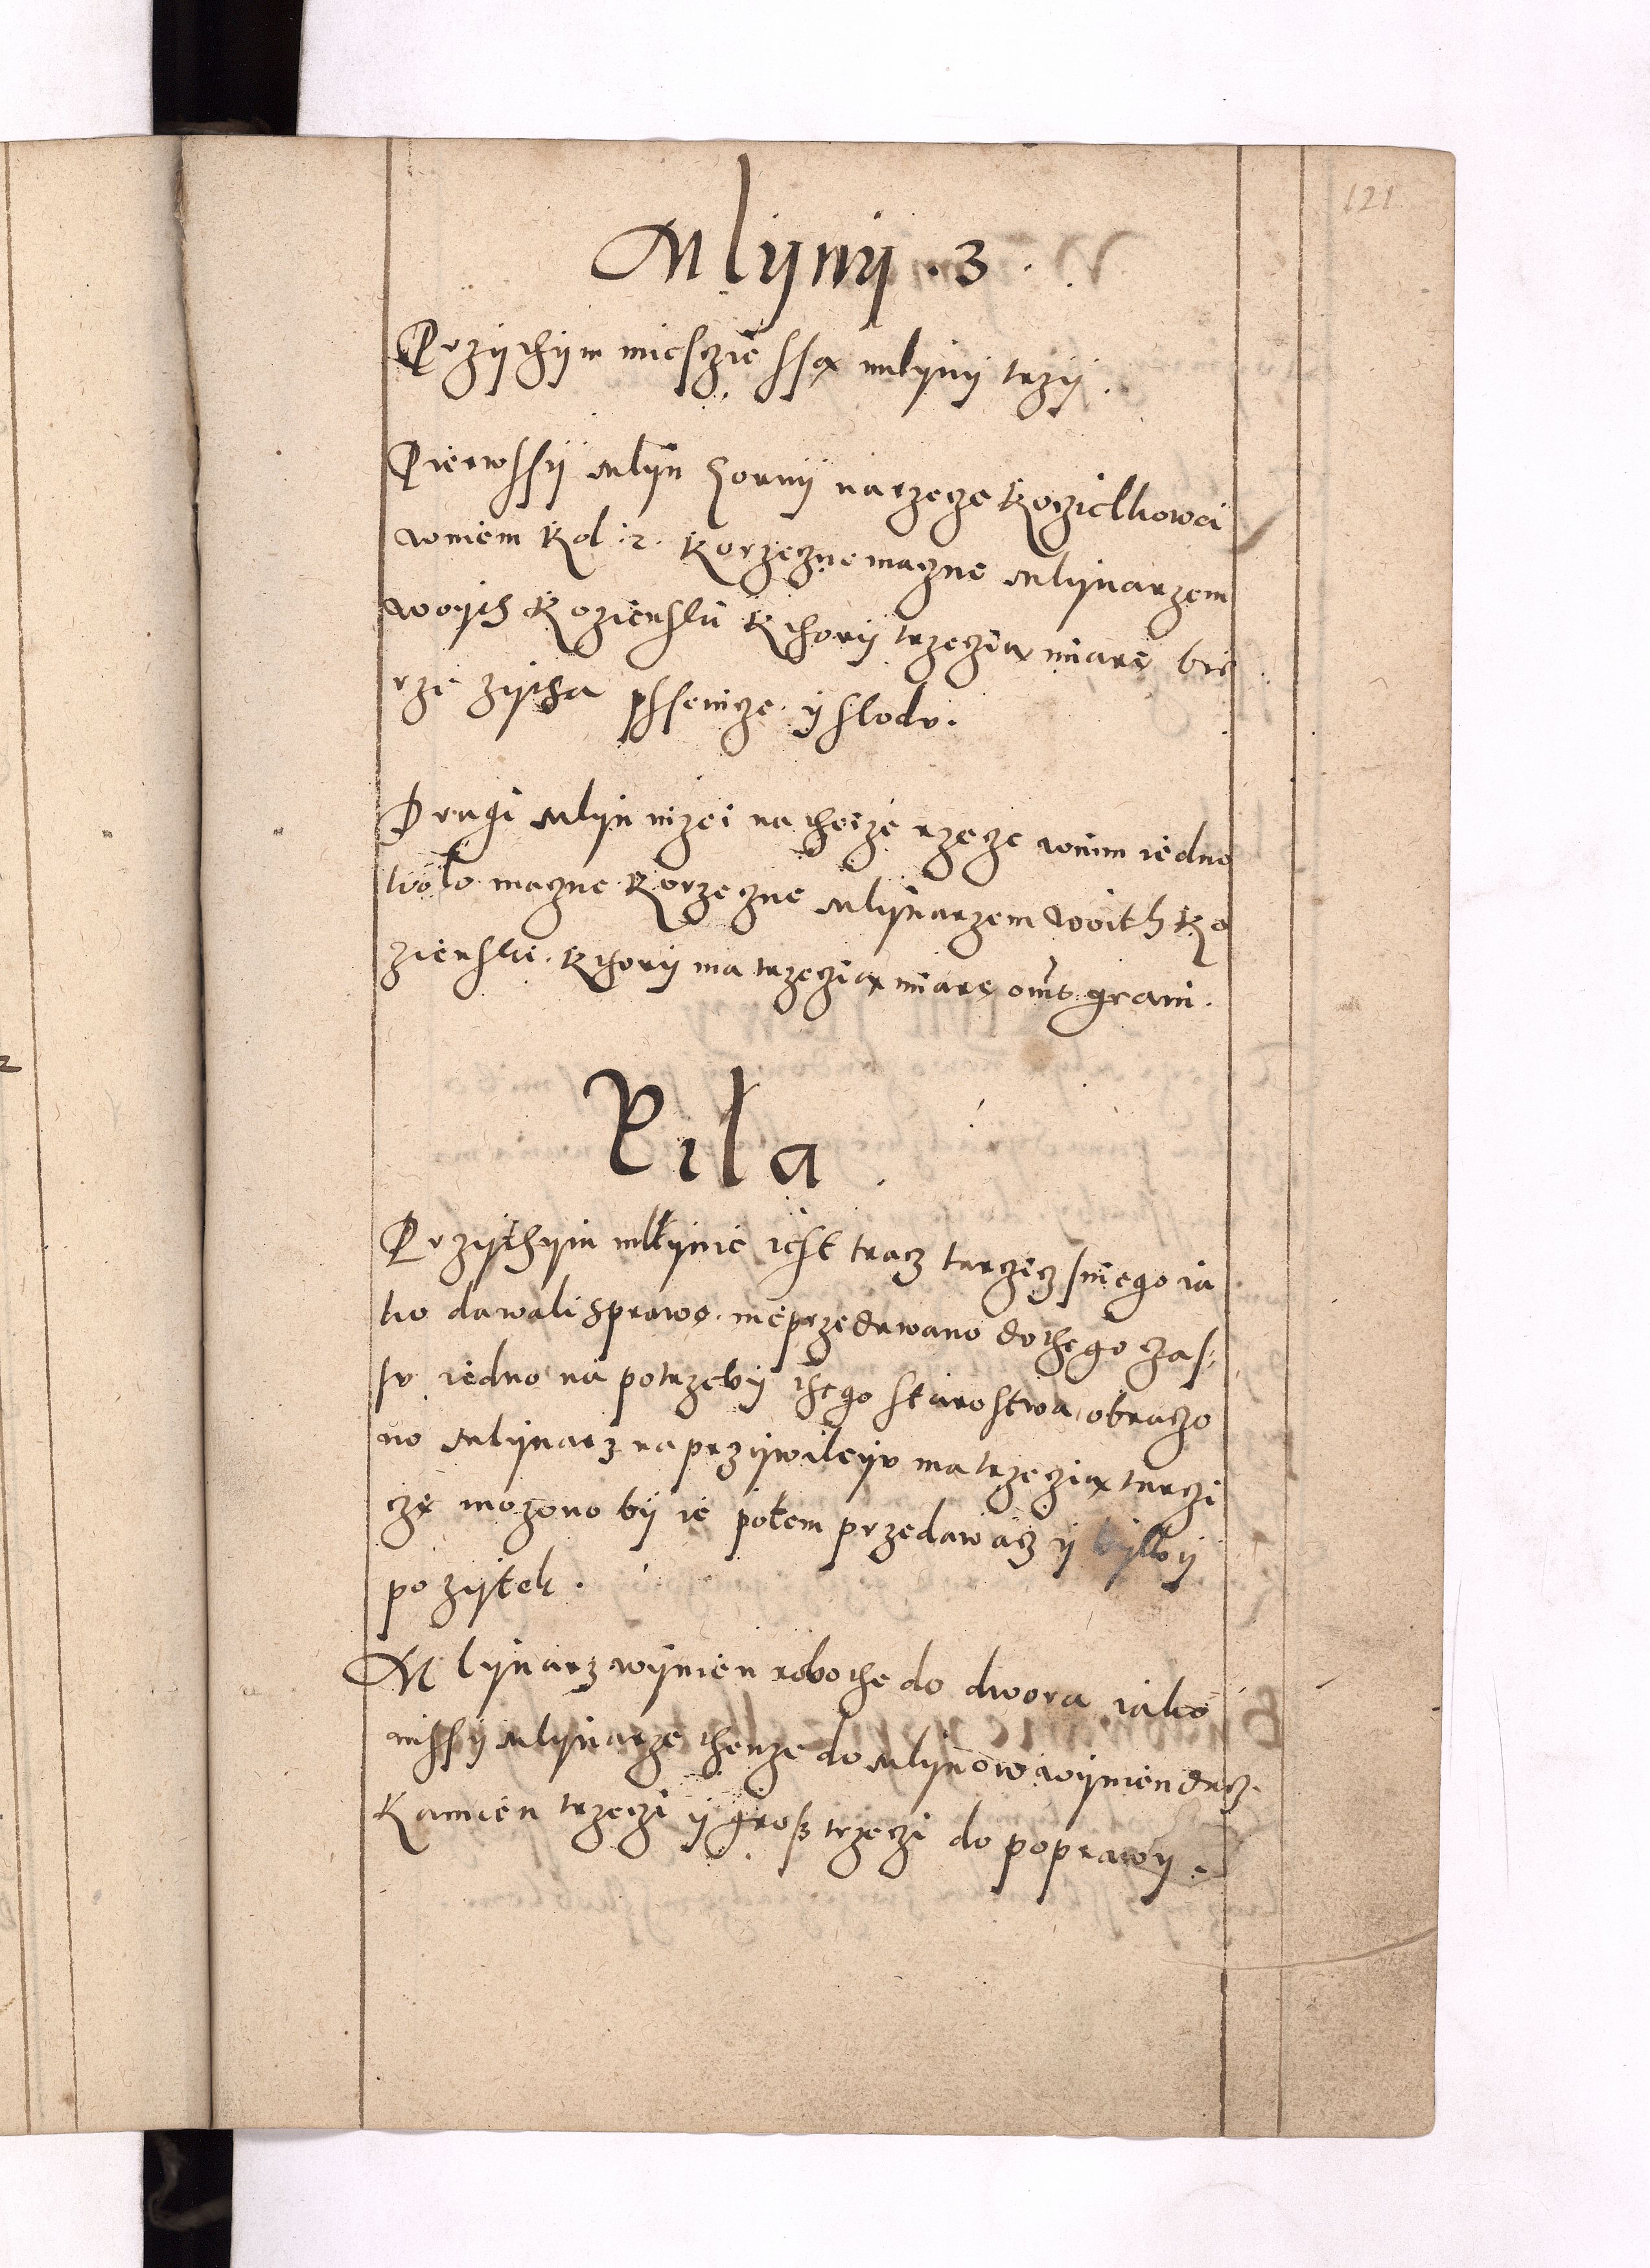 121
Mlyny . 3 .
Przythym miesczie ssą mlyny trzy .
Pierwssy mlyn Gorny na rzece Kozielkowei
wniem kol : 2 . Korzeczne maczne Mlynarzem
woyth Kozienski Kthory trzeczią miarę bie
rze zytha psseniczę y slodu .
Drugi mlyn nizei na theize rzecze wnim iedno
kolo maczne Korzeczne Mlynarzem woith Ko
zienski . Kthory ma trzeczią miarę omnis grani .
Pila .
Przythym młynie iest tracz tarczicz sniego ia
ko dawali sprawę . nieprzedawano dothego czas
su iedno na potrzeby thego starostwa obraczo
no Mlynarz na przywileyu ma trzeczią tarczi
czę mozono by ie potem przedawacz y bylby
pozytek .
Mlynarz wynien robothe do dwora iako
inssy Mlynarze thenze do Mlynow wynien dacz .
Kamien trzeczi y grosz trzeczi do poprawy .